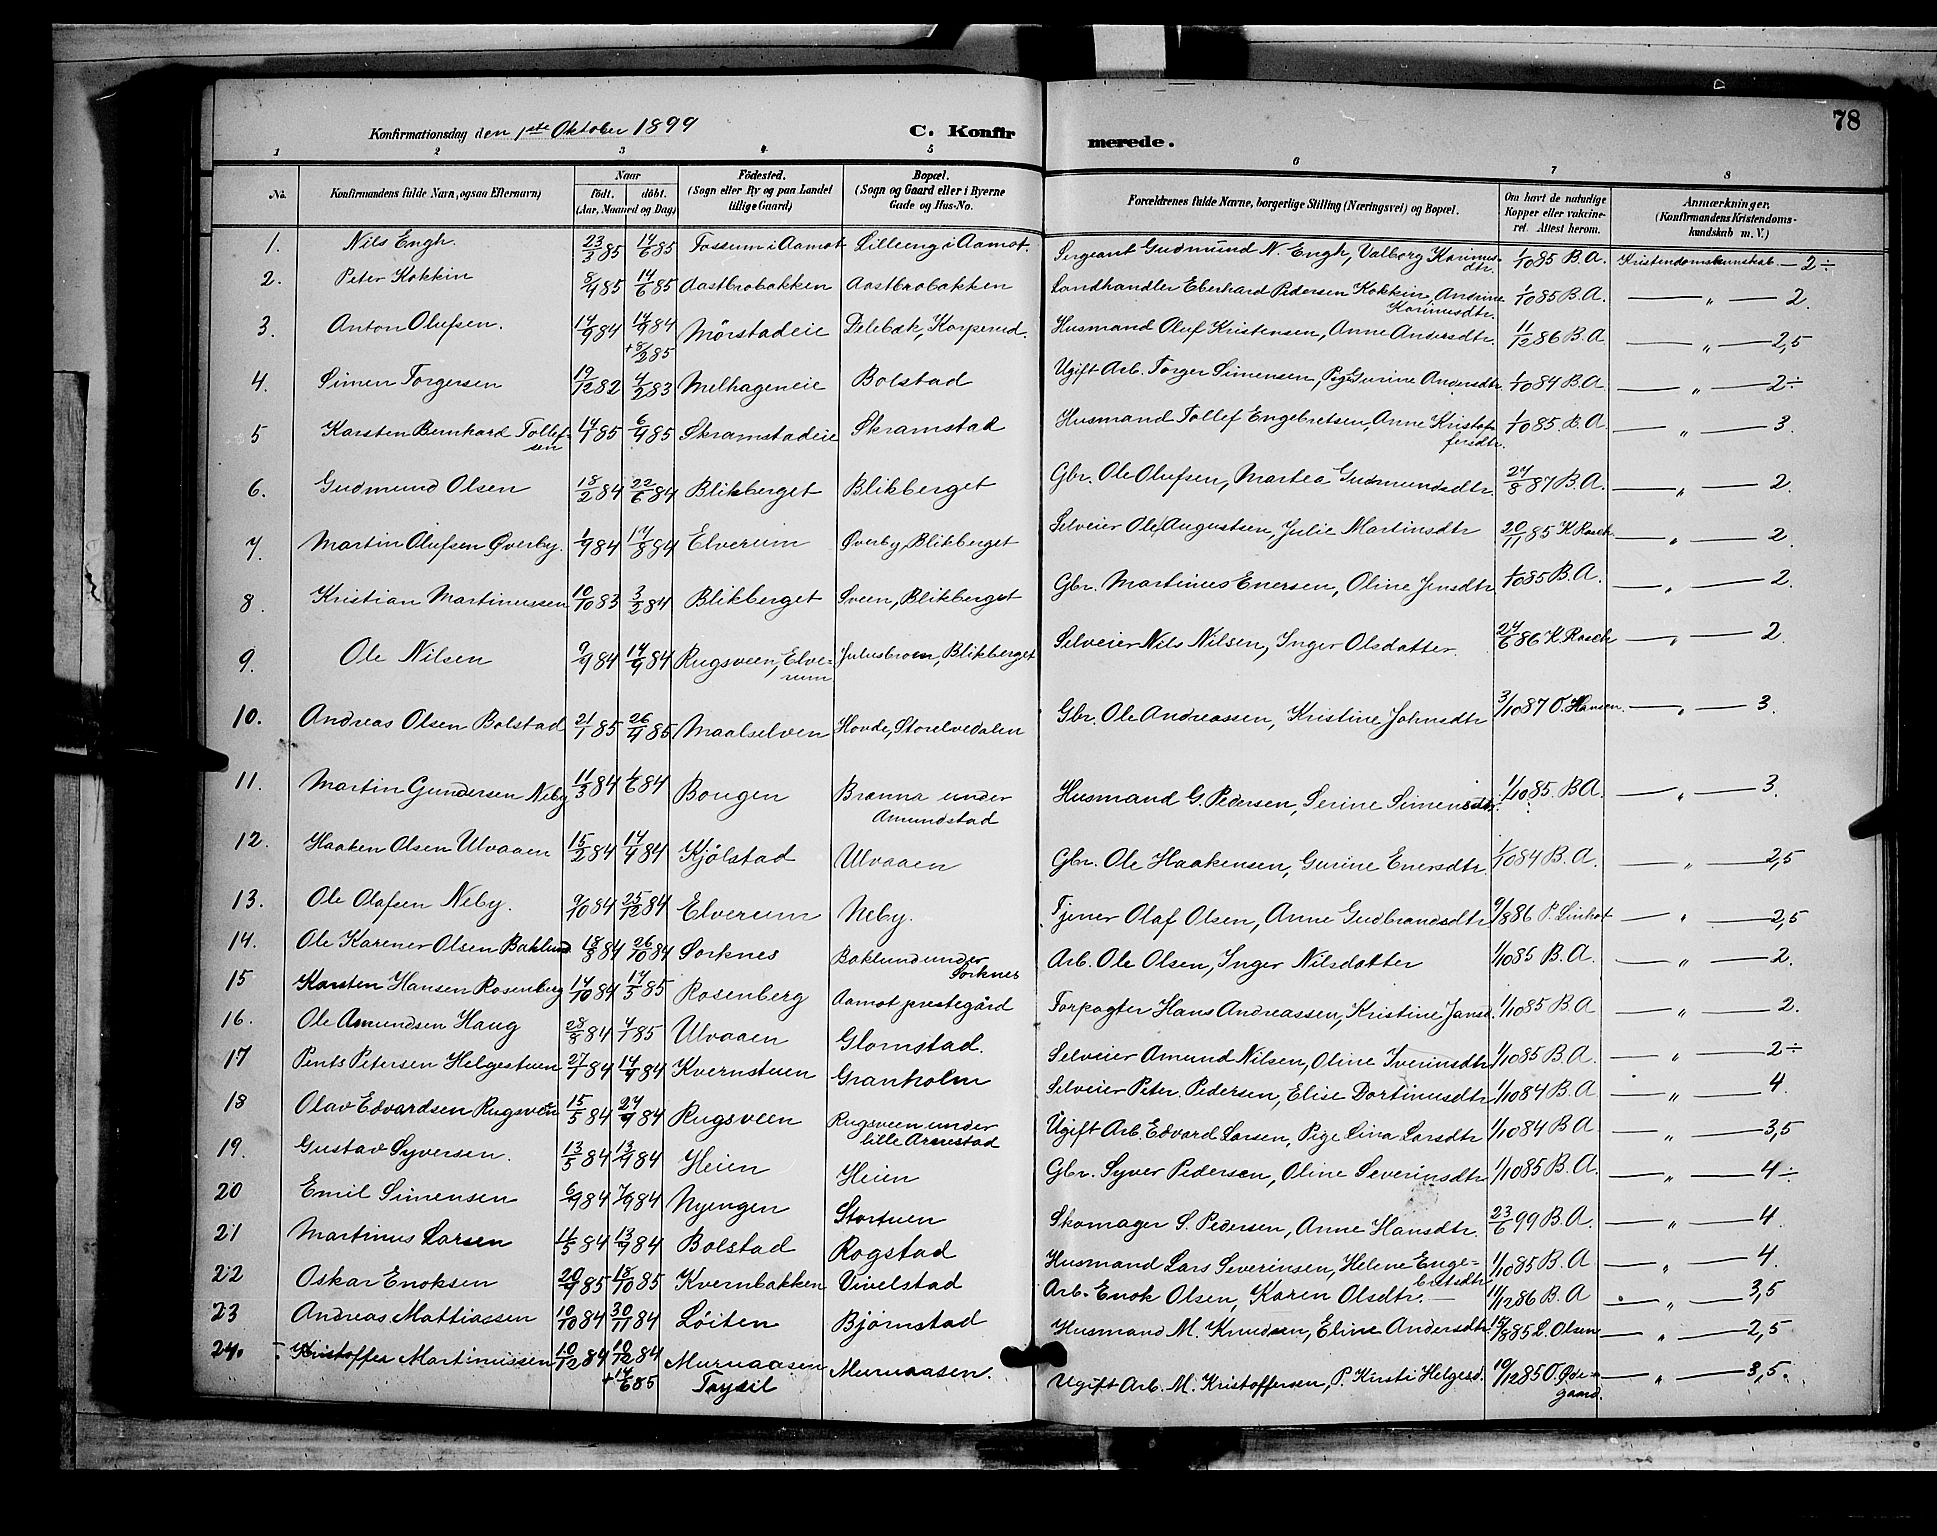 78
Konfirmationsdag den 1ste Oktober 1899 C. Konfirmerede.
1 2 3 4 5 6 7 8
No. Konfirmandens fulde Navn, ogsaa Efternavn) Naar født. døbt. (Aar, Maaned og Dag) Fødested. (Sogn eller By og paa Landet tillige Gaard) Bopæl. (Sogn og Gaard eller i Byerne Gade og Hus-No. Forældrenes fulde Navne, borgerlige Stilling (Næringsvei) og Bopæl. Om havt de naturlige Kopper eller vakcineret. Attest herom. Anmærkninger. (Konfirmandens Kristendomskundskab m. V.)
1. Nils Engh. 23/3 85 14/6 85 Fossum i Aamot Lilleeng i Aamot. Sergeant Gudmund N. Engh, Valborg Karinusdtr. 1/10 85 B.A. Kristendomskunskab — 2 ÷
2. Peter Kokkin 8/4 85 14/6 85 Aastbrobakken Aastbrobakken Landhandler Eberhard Pedersen Kokkin, Andrine Karinusdtr. 1/10 85 B.A. — „ — 2.
3. Anton Olufsen. 14/9 84 14/9 84 + 8/2 85 Mörstadeie Delebæk, Korperud. Husmand Oluf Kristensen, Anne Andersdtr. 11/12 86 B.A — „ — 2,5
4. Simen Torgersen 19/12 82 4/2 83 Melhageneie Bolstad Ugift Arb. Torger Simensen, Pige Gurine Andersdtr. 1/10 84 B.A — „ — 2 ÷
5 Karsten Bernhard Tollefsen 14/1 85 6/4 85 Skramstadeie Skramstad Husmand Tollef Engebretsen, Anne Kristoffersdtr. 1/10 85. B.A. — „ — 3.
6. Gudmund Olsen 18/2 84 22/6 84 Blikberget Blikberget Gbr. Ole Olufsen, Martea Gudmundsdtr. 24/8 87 B.A. — „ — 2.
7. Martin Olufsen Øverby. 1/9 84 17/8 84 Elverum Øverby, Blikberget Selveier Ole Augustsen, Julie Martinsdtr 20/11 85 K Rasch. — „ — 2.
8. Kristian Martinussen 10/10 83 3/2 84 Blikberget Sveen, Blikberget Gbr. Martinus Enersen, Oline Jensdtr. 1/10 85 B.A. — „ — 2.
9. Ole Nilsen 9/9 84 14/9 84 Rugsveen, Elverum Julusbroen, Blikberget Selveier Nils Nilsen, Inger Olsdatter. 24/6 86 K Rasch — „ — 2.
10. Andreas Olsen Bolstad 21/1 85 26/4 85 Maalselven Hovde, Storelvedalen Gbr. Ole Andreassen, Kristine Johnsdtr. 3/10 87 O. Hansen. — „ — 3.
11. Martin Gundersen Neby 11/3 84 1/6 84 Bougen Brænna under Amundstad Husmand G. Pedersen, Serine Simensdtr. 1/10 85. B.A. — „ — 3.
12. Haaken Olsen Ulvaaen 15/2 84 14/4 84 Kjölstad Ulvaaen Gbr. Ole Haakensen, Gurine Enersdtr. 1/10 84 B.A. — „ — 2,5
13. Ole Olafsen Neby. 9/10 84 25/12 84 Elverum Neby. Tjener Olaf Olsen, Anne Gudbrandsdtr 9/8 86 P. — „ — 2,5
14. Ole Karener Olsen Baklund 18/8 84 26/10 84 Sorknes Baklund under Sorknes Arb. Ole Olsen, Inger Nilsdatter 1/10 85 B.A. — „ — 2.
15 Karsten Hansen Rosenberg 14/10 84 17/5 85 Rosenberg Aamot prestegård Forpagter Hans Andreassen, Kristine Jansd. 1/10 85 B.A — „ — 2.
16. Ole Amundsen Haug 28/8 84 4/1 85 Ulvaaen Glomstad. Selveier Amund Nilsen, Oline Iverinsdtr. 1/10 85 B.A. — „ — 2 ÷
17 Pents Petersen Helgestuen 27/1 84 14/4 84 Kvernstuen Granholm Selveier Peter Pedersen, Elise Dortinusdtr 1/10 84 B.A — „ — 4.
18 Olav Edvardsen Rugsveen 15/5 84 24/9 84 Rugsveen Rugsveen under lille Arnestad Ugift Arb. Edvard Larsen, Pige Lina Larsdtr 1/10 84 B.A — „ — 3,5
19. Gustav Syversen. 13/5 84 13/9 84 Heien Heien Gbr. Syver Pedersen, Oline Severinsdtr 1/10 85 B.A. — „ — 4 ÷
20 Emil Simensen 6/9 84 7/9 84 Nyengen Stortuen Skomager S. Pedersen, Anne Hansdtr. 23/6 99 B.A. — „ — 4.
21 Martinus Larsen 11/5 84 13/9 84 Bolstad Rogstad Husmand Lars Severinsen, Helene Engebretsdtr. 1/10 85 B.A — „ — 4.
22 Oskar Enoksen 20/9 85 18/10 85 Kvernbakken Vivelstad Arb. Enok Olsen, Karen Olsdtr. — 11/12 86 B.A — „ — 3,5
23 Andreas Mattiassen 10/10 84 30/11 84 Löiten Bjørnstad Husmand M. Knudsen, Eline Andersdtr. 15/8 85 L. Olsen — „ — 2,5
24. Kristoffer Martinussen 10/12 84 10/12 84 + 14/6 85 Muruaasen Trysil Muruaasen. Ugift Arb. M. Kristoffersen, P. Kirsti Helgesd. 19/12 85 O. Ødegaard. — „ — 3,5.